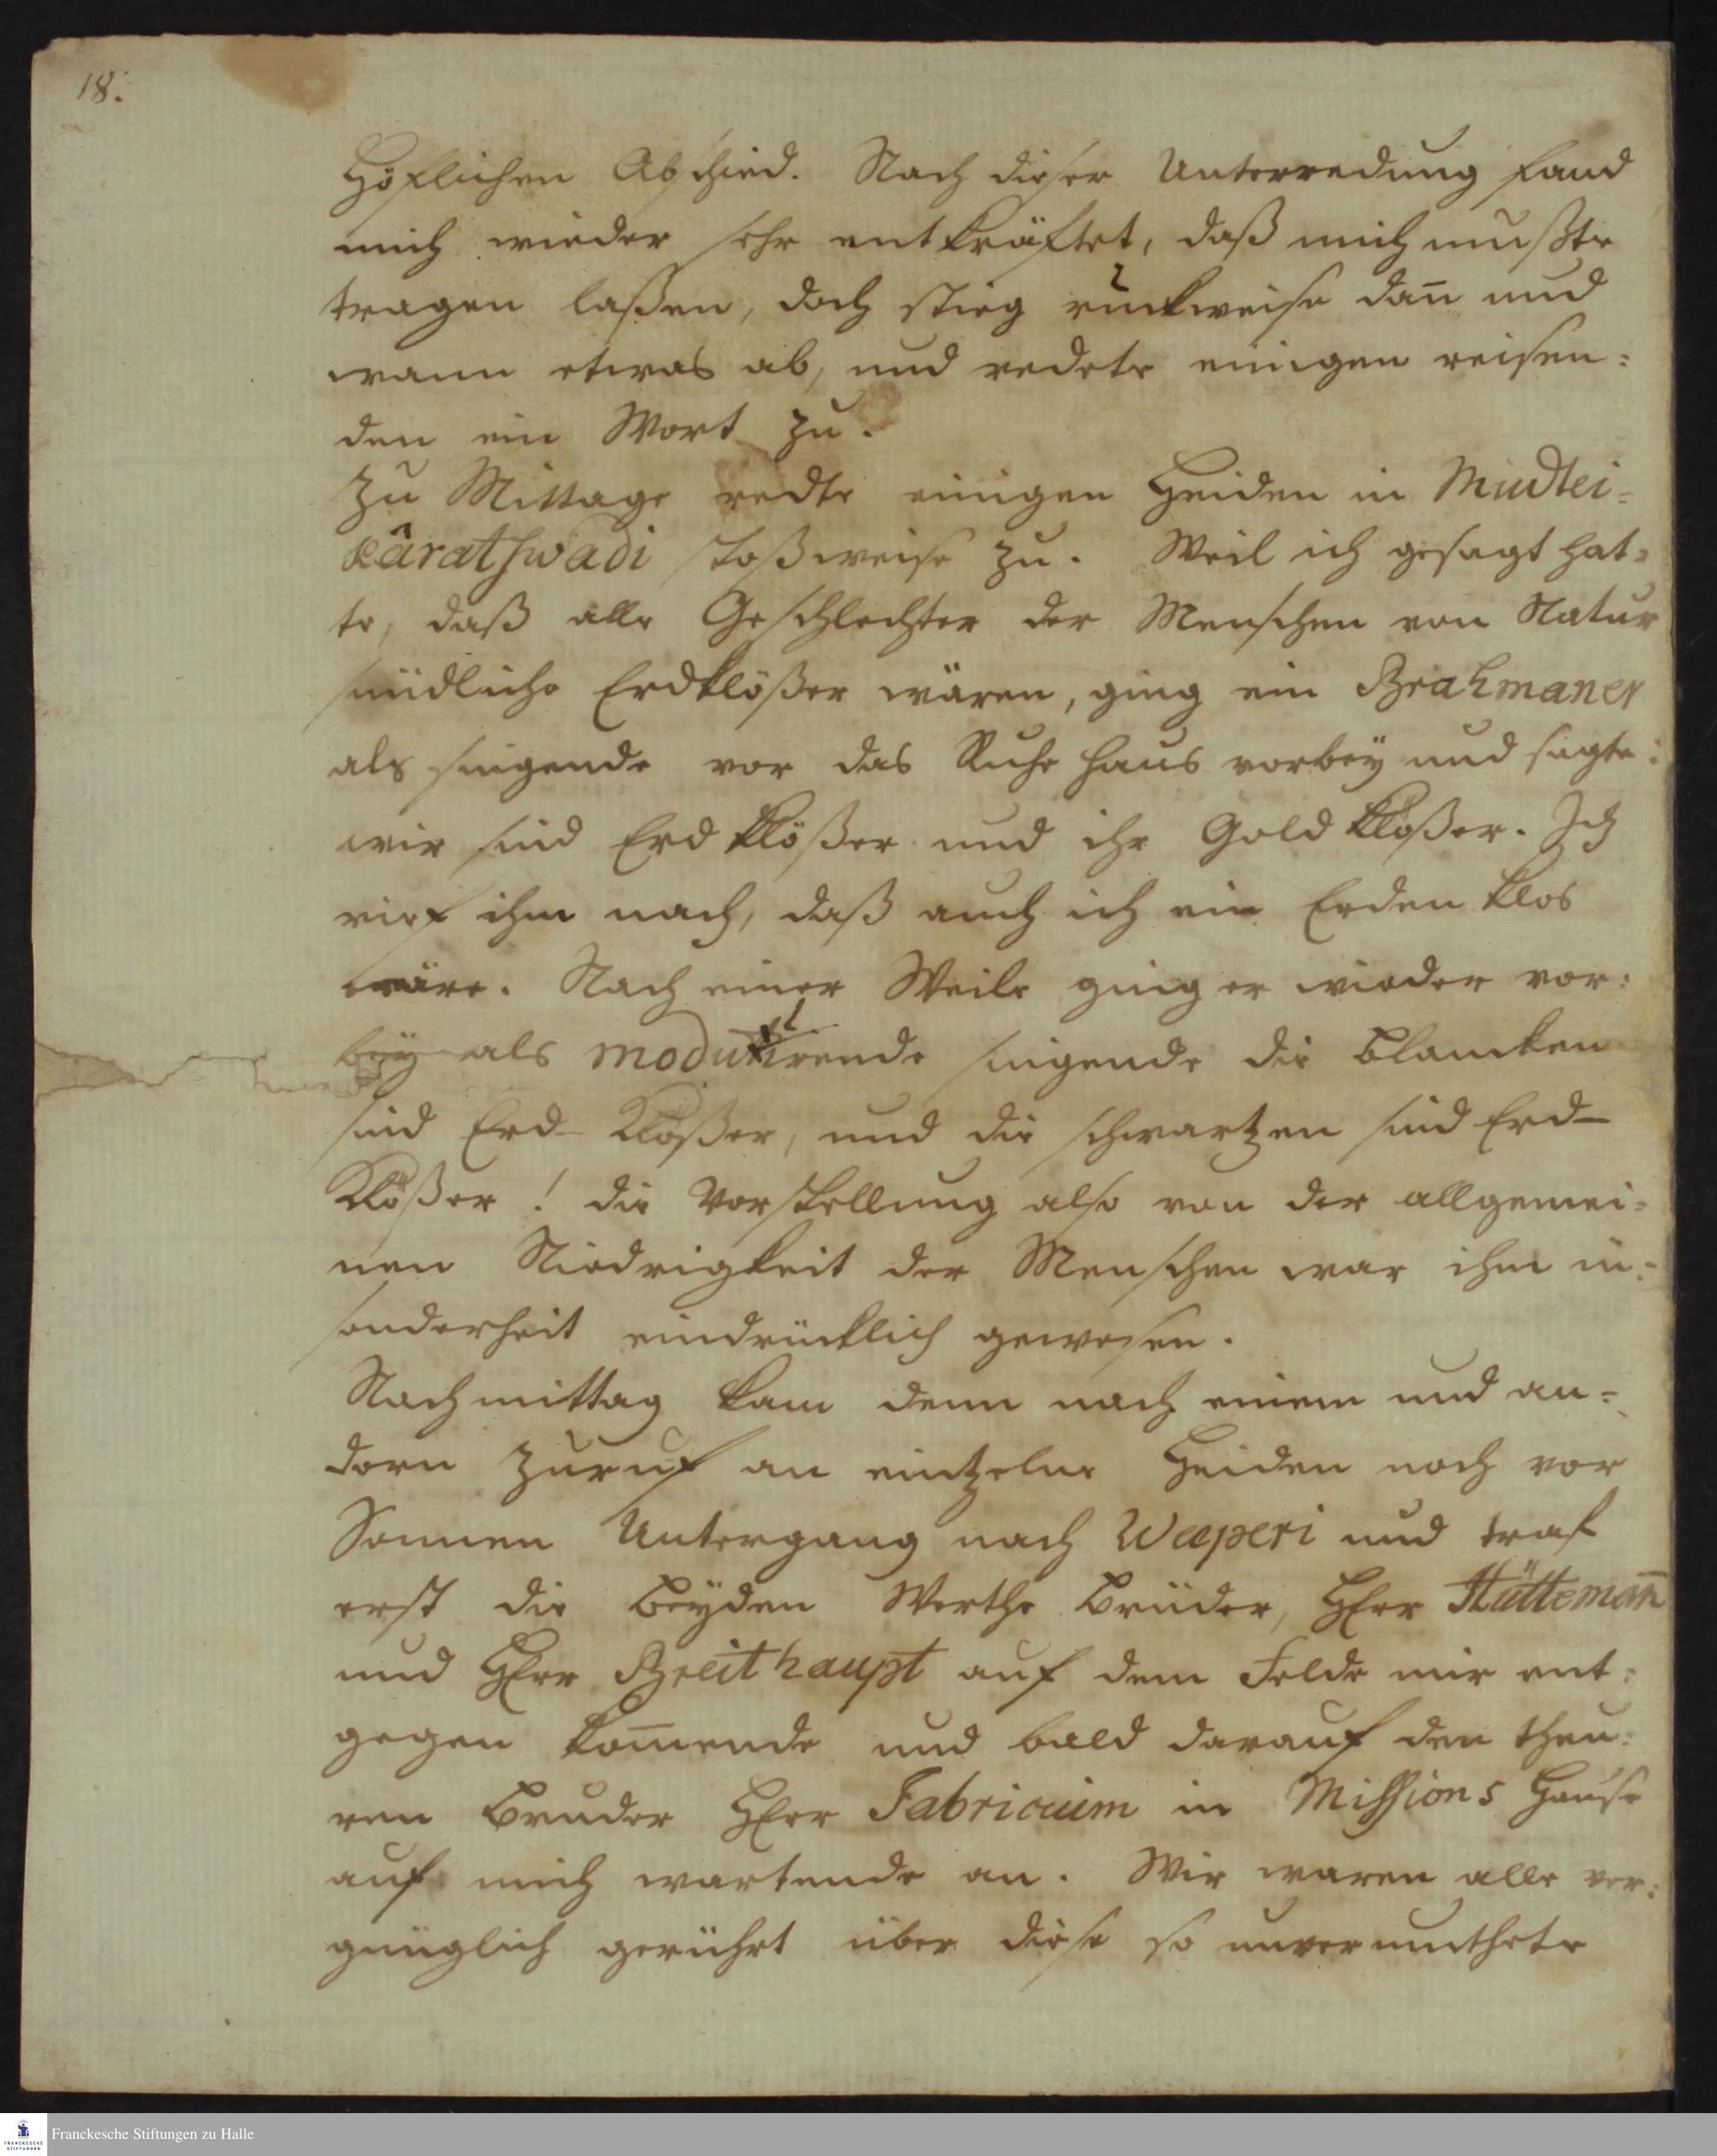 18.
Höflichen Abschied. Nach dieser Unterredung fand
mich wieder sehr entkräftet, daß mich mußte
tragen laßen, doch stieg ruckweise dan̄ und
wann etwas ab, und redete einigen reisen=
den ein Wort zu.
Zu Mittage redte einigen Heiden in Mudlei=
kâratschwadi stoßweise zu. Weil ich gesagt hat=
te, daß alle Geschlechter der Menschen von Natur
sündliche Erdklößer wären, ging ein Brahmaner
als singende vor das Ruhe Haus vorbey und sagte:
wir sind Erd klößer und ihr Gold klößer. Ich
rief ihm nach, daß auch ich ein Erden klos
wäre. Nach einer Weile ging er wieder vor=
bey als modulirende singende die Blancken
sind Erd- Klößer, und die schwartzen sind Erd-
Klößer! die Vorstellung also von der allgemei=
nen Niedrigkeit der Menschen war ihm in=
sonderheit eindrücklich gewesen.
Nachmittag kam denn nach einem und an=
dern Zuruf an eintzelne Heiden noch vor
Sonnen Untergang nach Weperi und traf
erst die beyden Werthe Brüder, HErr Hütteman̄
und HErr Breithaupt auf dem Felde mir ent=
gegen kom̄ende und bald darauf den theu=
ren Bruder HErr Fabricium in Missions Hause
auf mich wartende an. Wir waren alle ver=
gnüglich gerührt über diese so unvermuthete
Franckesche Stiftungen zu Halle